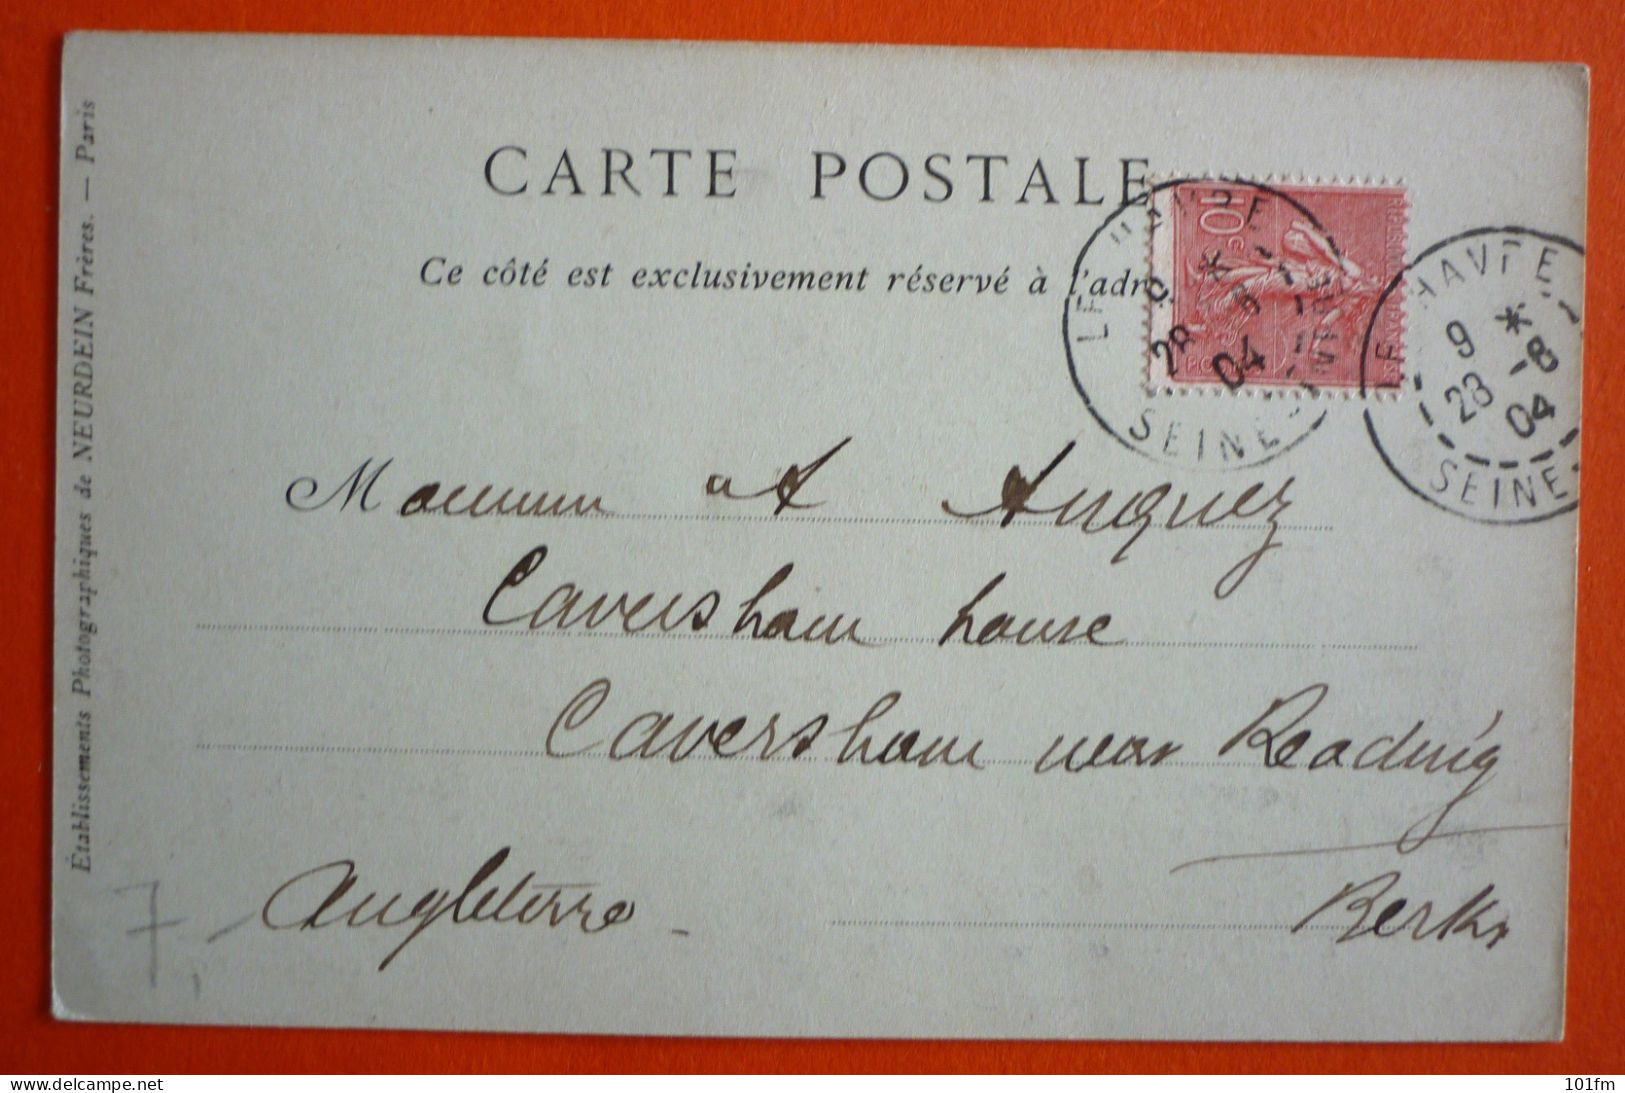 CARTE POSTALE
Ce côté est exclusivement réservé à l'adr
10c
LE HAVRE
28 8
04
SEINE
LE HAVRE
9 *
28 -8
04
SEINE
A Anquez
Caversham house
Caversham near Reading
Angleterre - Berks
Établissements Photographiques de NEURDEIN Frères. — Paris
7
https://www.delcampe.net/
101fm